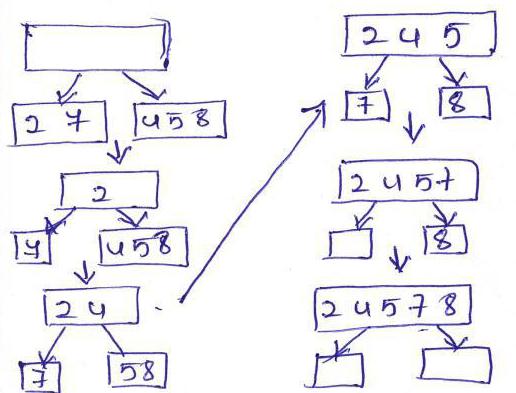 2 7
4 5 8
2
7
4 5 8
2 4
7
5 8
2 4 5
7
8
2 4 5 7
8
2 4 5 7 8